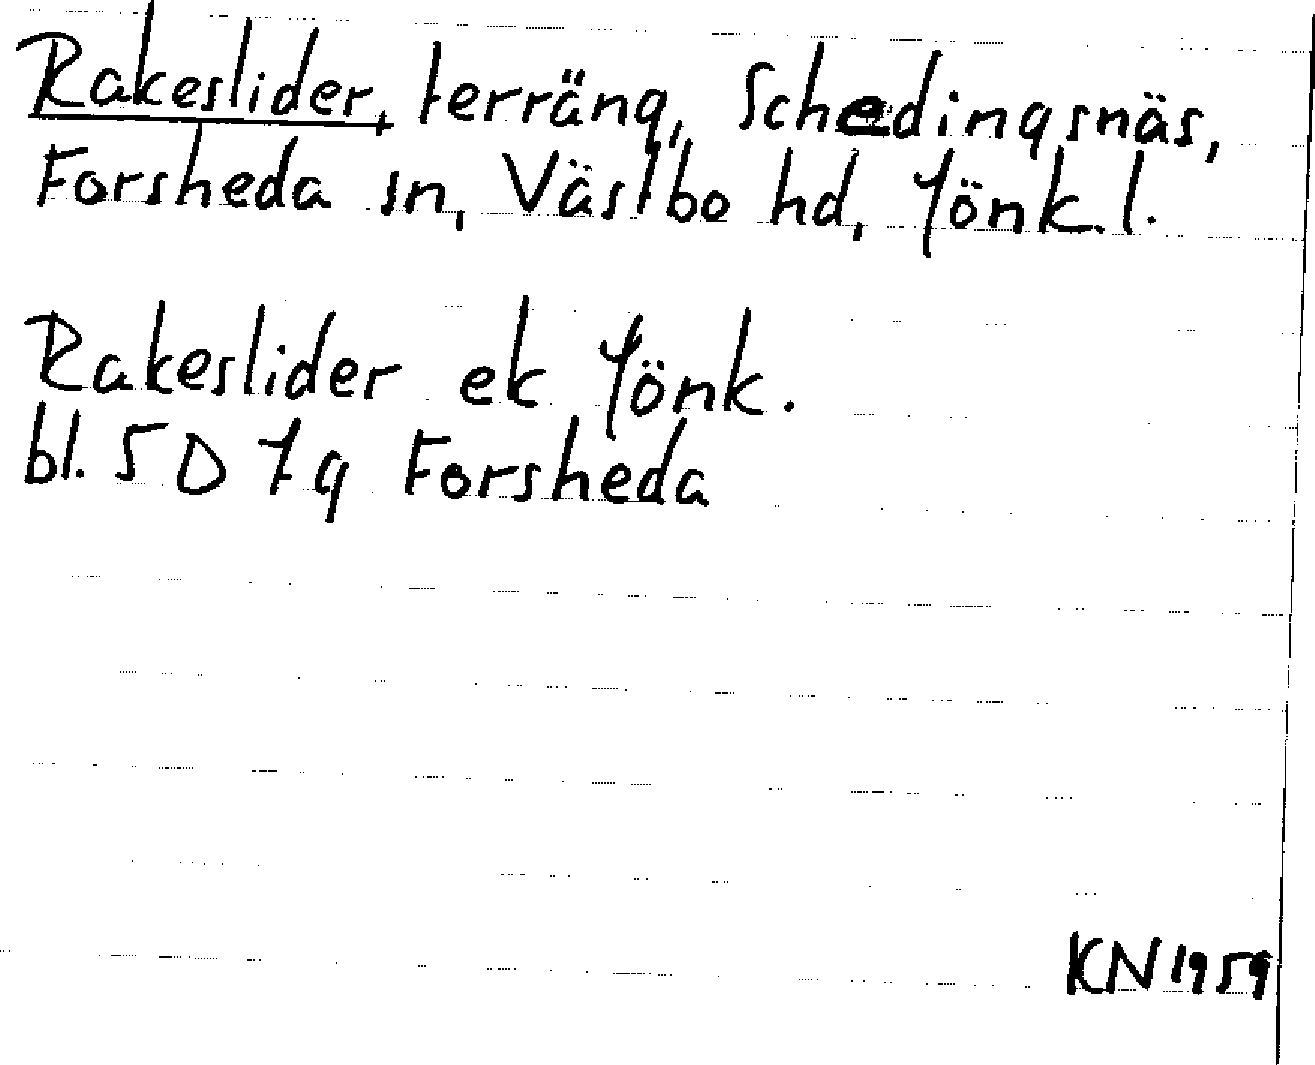 Rakeslider, terräng, Schedingsnäs,
Forsheda sn, Västbo hd, Jönk. l.
Rakeslider ek Jönk.
bl. 5D 7g Forsheda
KN 1959